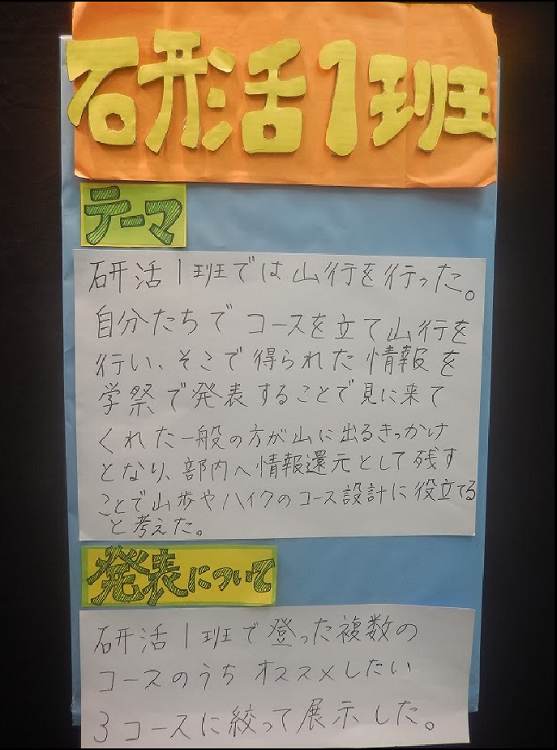 研形活1班
テーマ
研活1班では山行を行った。
自分たちでコースを立て山行を
行い、そこで得られた情報を
学祭で発表することで見に来て
くれた一般の方が山に出るきっかけ
となり、部内へ情報還元として残す
ことで山歩やハイクのコース設計に役立てる
と考えた。
発表について
研活1班で登った複数の
コースのうちオススメしたい
3コースに絞って展示した。